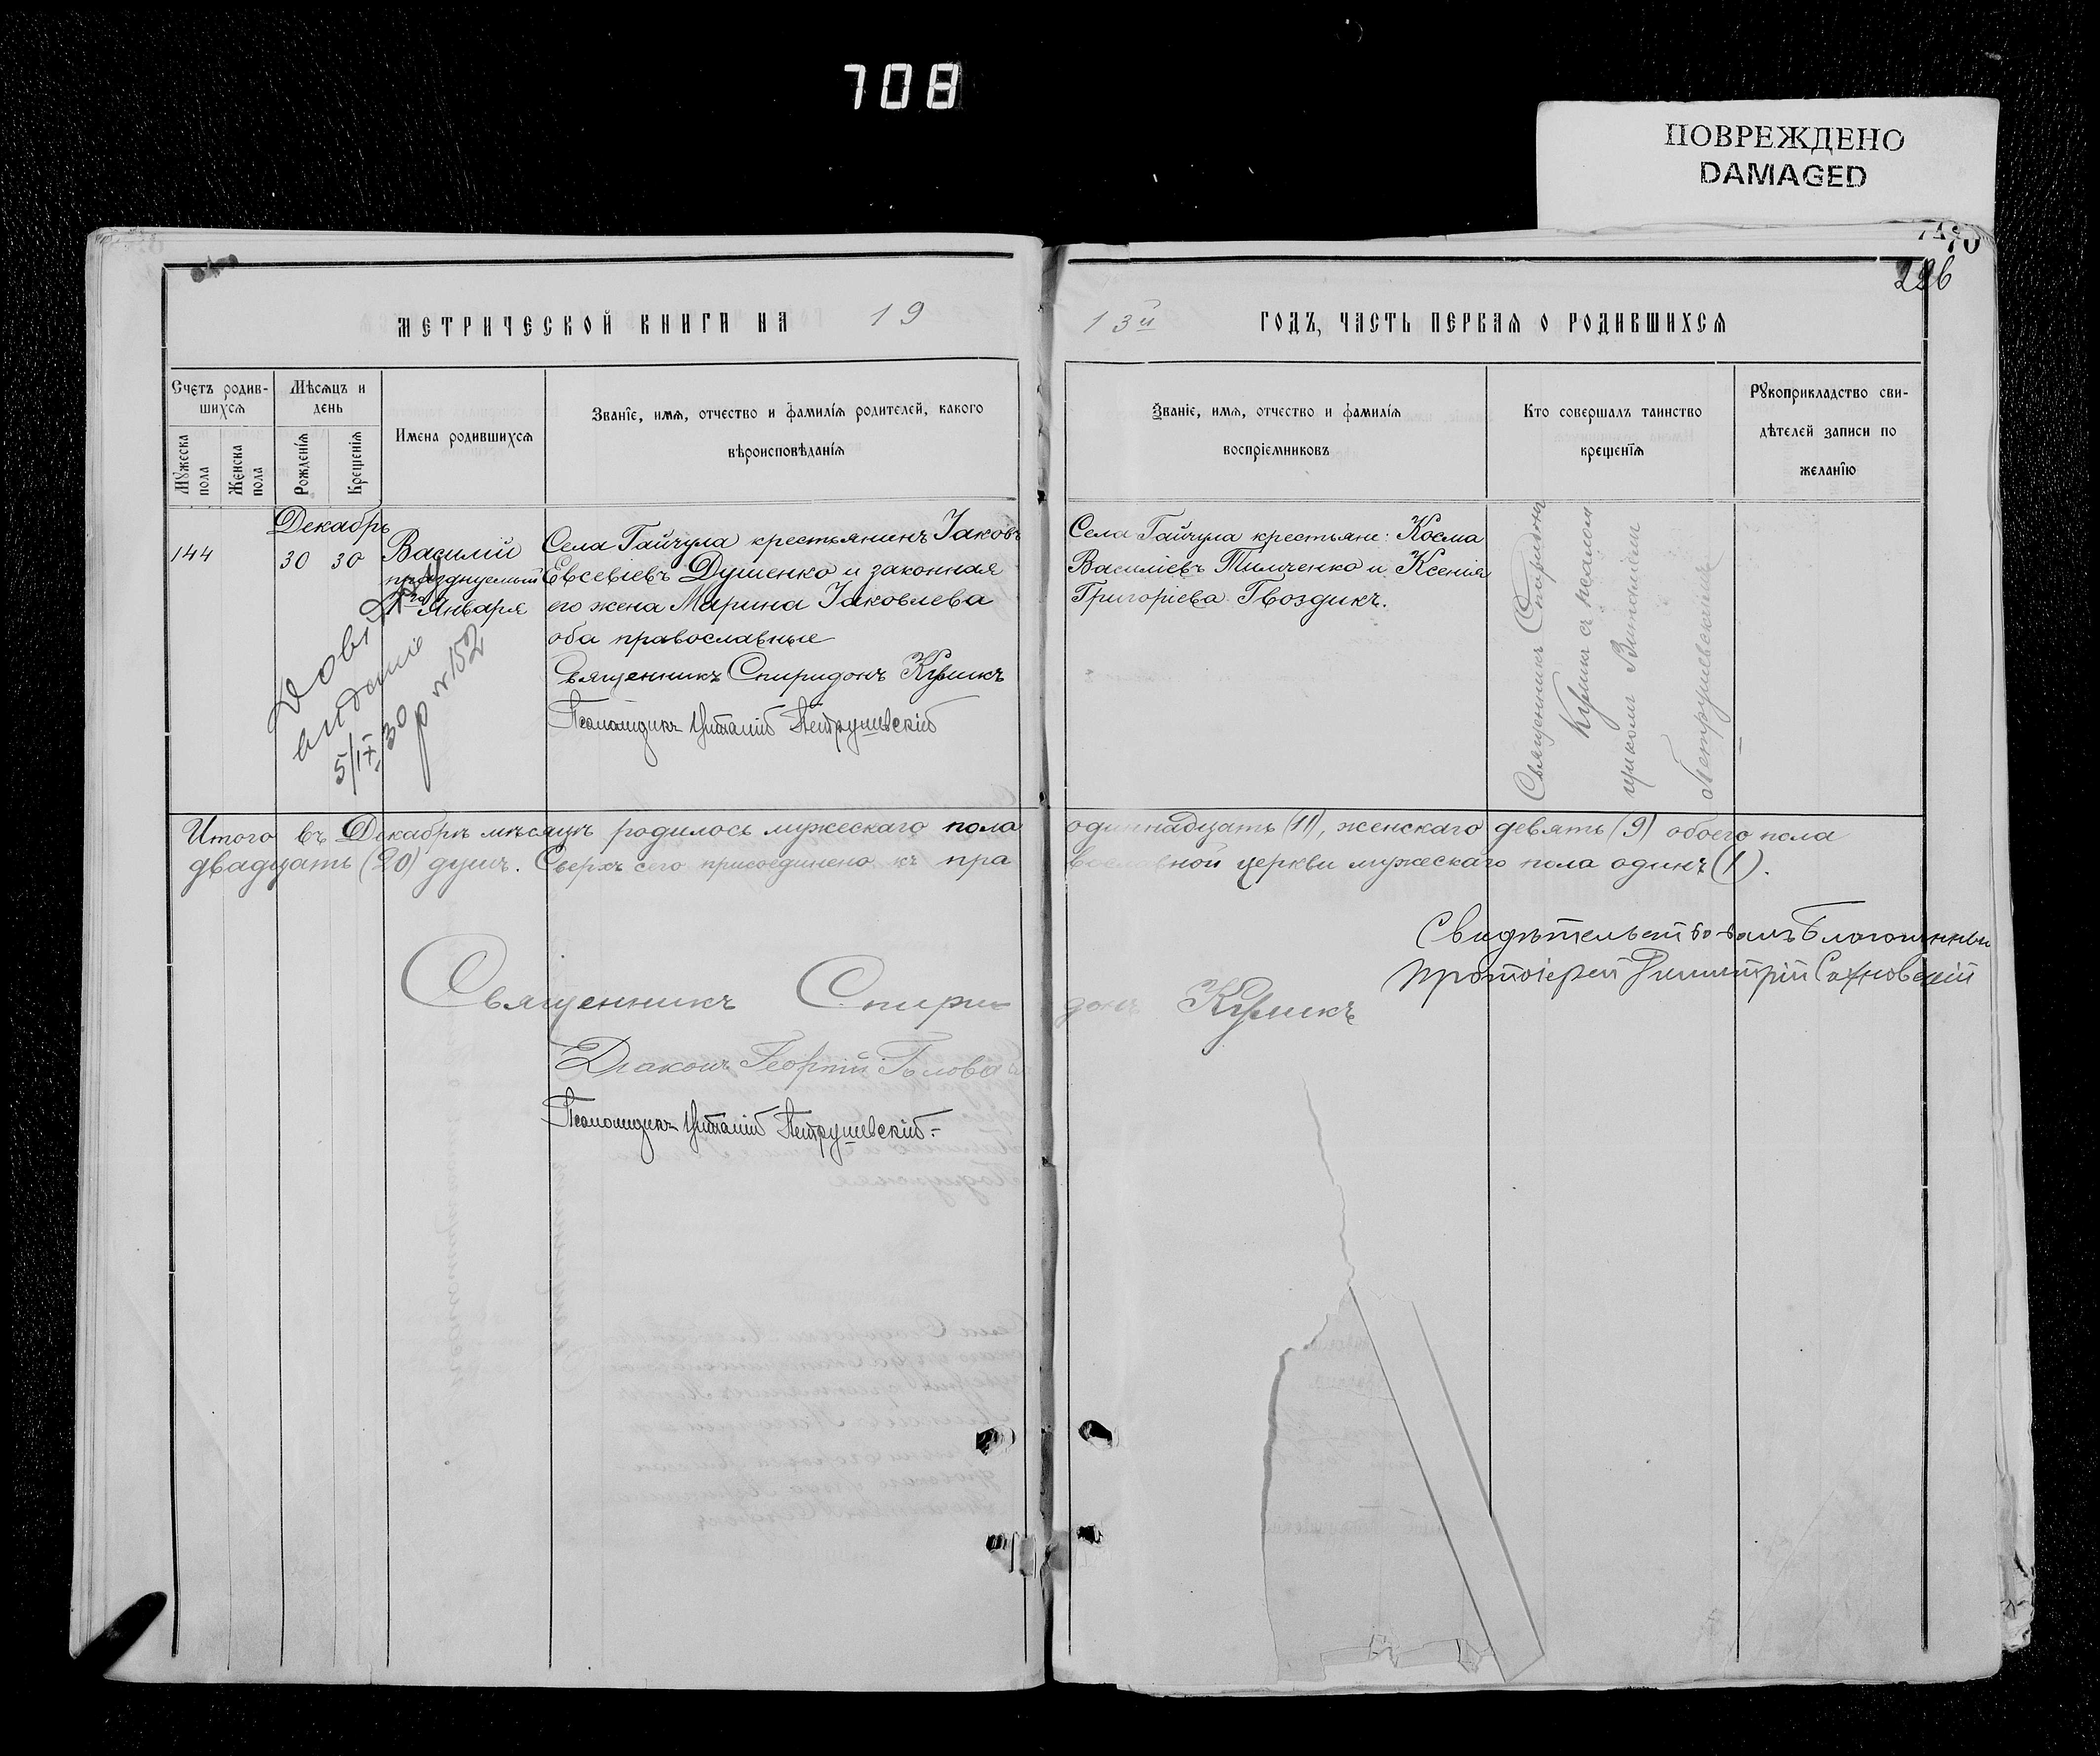 708
ПОВРЕЖДЕНО
DAMAGED
70
226
МЕТРИЧЕСКОЙ КНИГИ НА 19
13й ГОДЪ, ЧАСТЬ ПЕРВАЯ О РОДИВШИХСЯ
Счетъ родив-
шихся
Мужеска
пола
Женска
пола
Мѣсяцъ и
день
Рожденія
Крещенія
Имена родившихся
Званіе, имя, отчество и фамилія родителей, какого
вѣроисповѣданія
Званіе, имя, отчество и фамилія
воспріемниковъ
Кто совершалъ таинство
крещенія
Рукоприкладство сви-
дѣтелей записи по
желанію
Декабрь
144
30 30
Василій
празднуемый
1го Января
5/IX 30
р № 152
Села Гайчула крестьянинъ Іаковъ
Евсевіевъ Душенко и законная
его жена Марина Іаковлева
оба православные
Священникъ Спиридонъ Куликъ
Псаломщикъ Виталій Петрушевскій
Села Гайчула крестьяне: Косма
Василіевъ Тимченко и Ксенія
Григоріева Гвоздикъ.
Священникъ Спиридонъ
Куликъ съ псалом
щикомъ Виталіемъ
Петрушевскимъ
Итого въ Декабрѣ мѣсяцѣ родилось мужескаго пола одиннадцать (11), женскаго девять (9) обоего пола
двадцать (20) душъ. Сверхъ сего присоединено къ православной церкви мужескаго пола одинъ (1).
Свидѣтельствовалъ Благочинный
Протоіерей Димитрій Сахновскій
Священникъ Спиридонъ Куликъ
Діаконъ Георгій
Псаломщикъ Виталій Петрушевскій